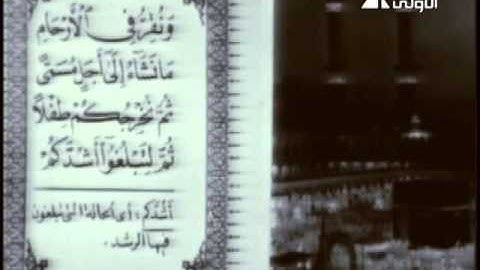 الأولى
وَنُقِرُّ فِي الْأَرْحَامِ
مَا نَشَاءُ إِلَى أَجَلٍ مُسَمًّى
ثُمَّ نُخْرِجُكُمْ طِفْلًا
ثُمَّ لِتَبْلُغُوا أَشُدَّكُمْ
أشدكم: أى الحالة التى تبلغون
فيها الرشد.